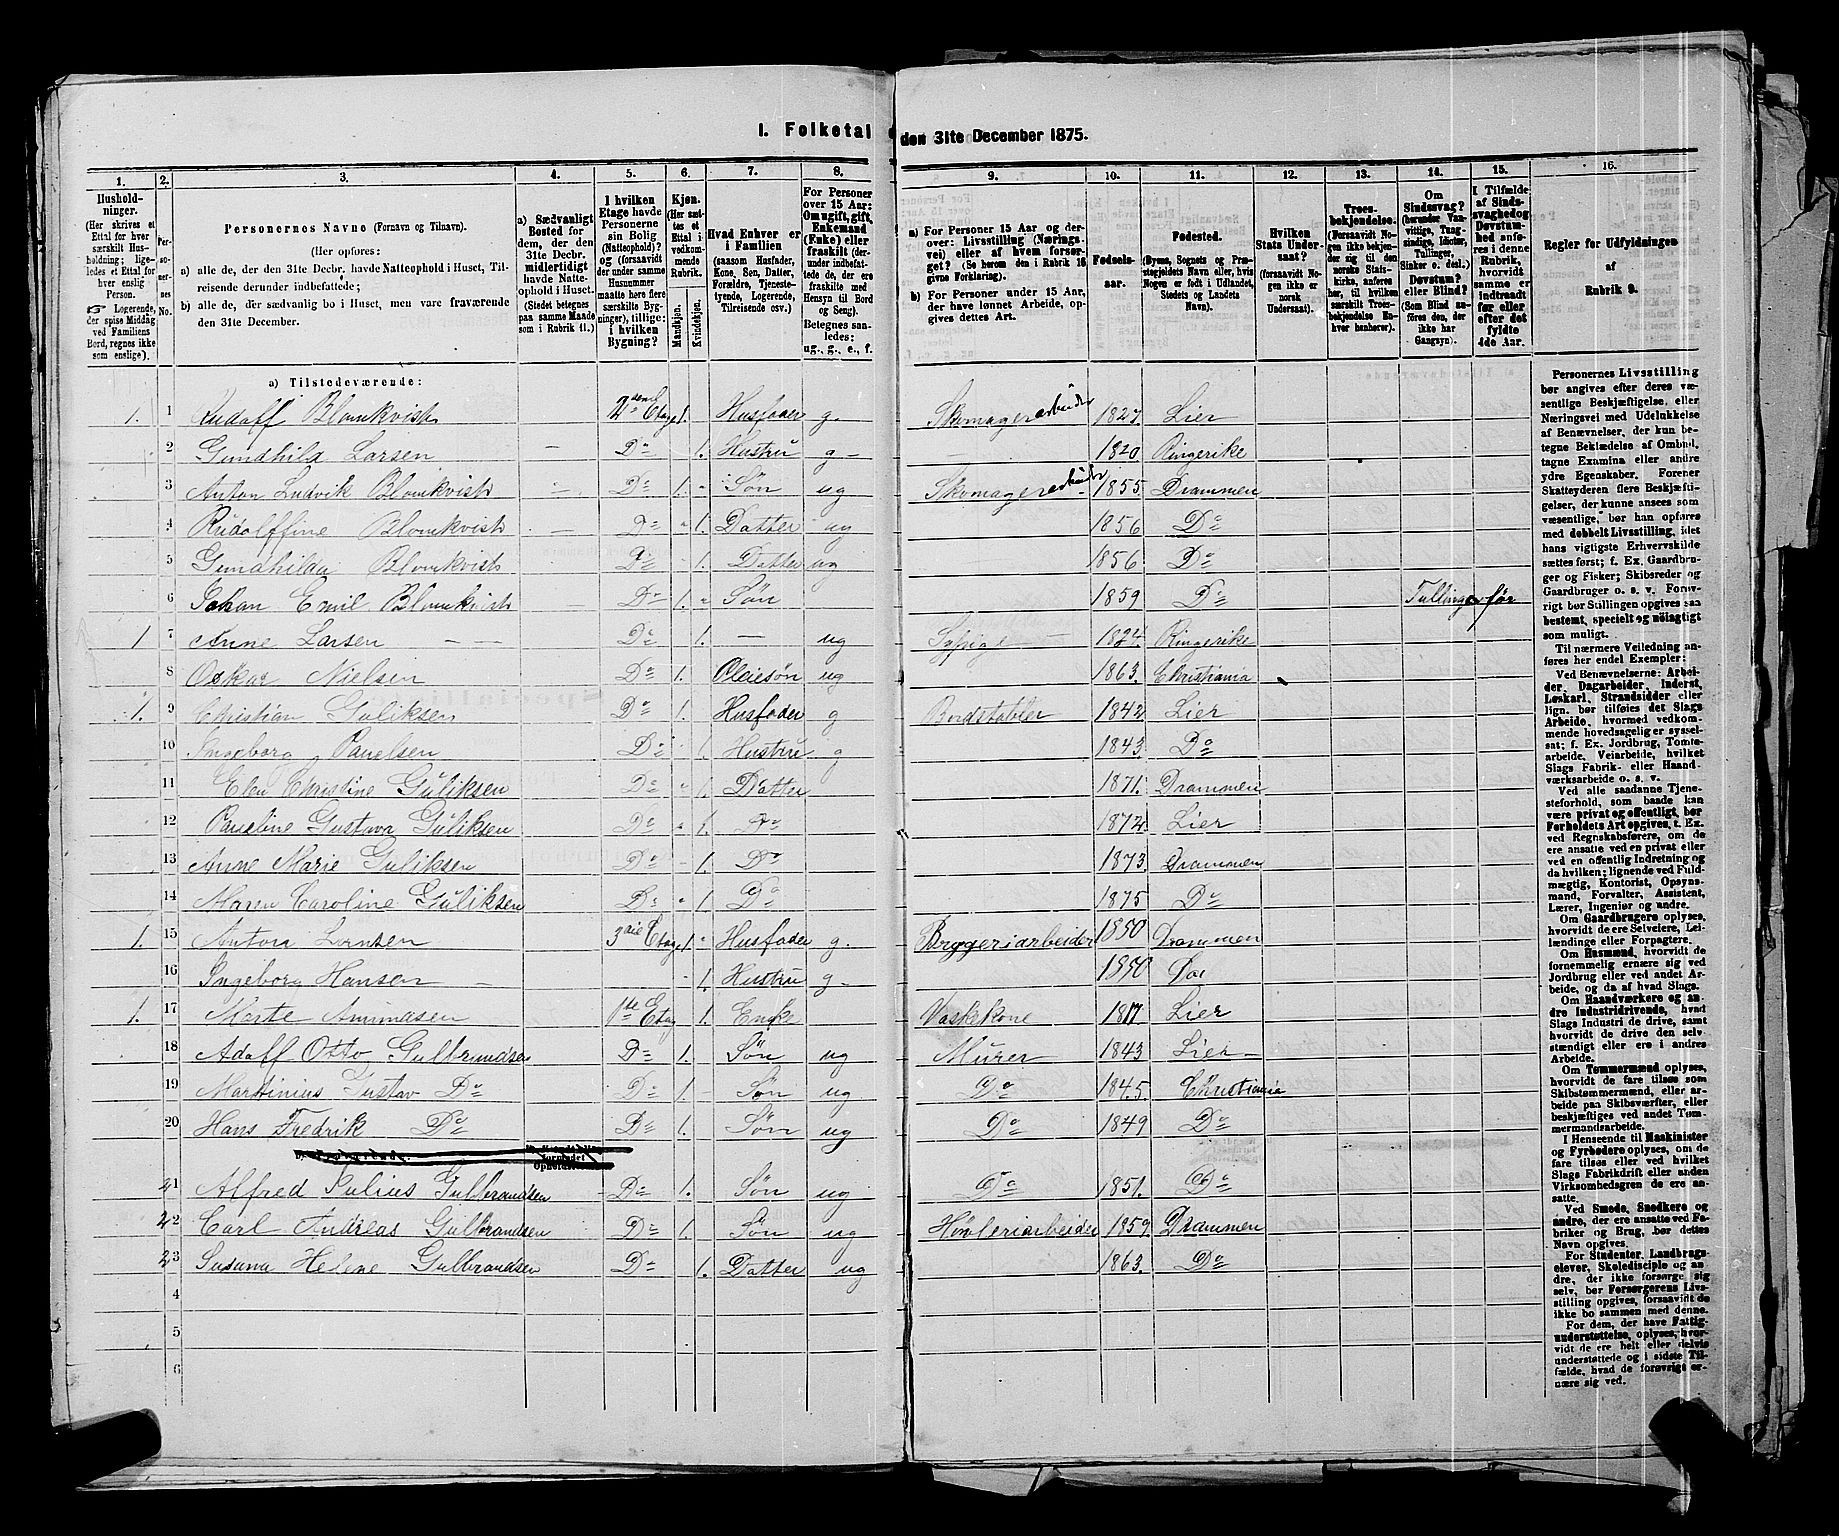 I. Folketal den 31te December 1875.
1. 2. 3. 4. 5. 6. 7. 8. 9. 10. 11. 12. 13. 14. 15. 16.
Hushold-
ninger.
(Her skrives et
Ettal for hver
særskilt Hus-
holdning; lige-
ledes et Ettal for
hver enslig
Person.
☞ Logerende,
der spise Middag
ved Familiens
Bord, regnes ikke
som enslige).
Per-
so-
ner-
nes
No.
Personernes Navne (Fornavn og Tilnavn).
(Her opføres:
a) alle de, der den 31te Decbr. havde Natteophold i Huset, Til-
reisende derunder indbefattede;
b) alle de, der sædvanlig bo i Huset, men vare fraværende
den 31te December.
a) Sædvanligt
Bosted for
dem, der den
31te Decbr.
midlertidigt
havde Natte-
ophold i Huset.
(Stedet betegnes
paa samme Maade
som i Rubrik 11.)
I hvilken
Etage havde
Personerne
sin Bolig
(Natteophold)?
og (forsaavidt
der under samme
Husnummer
maatte høre flere
særskilte Byg-
ninger), tillige:
i hvilken
Bygning?
Kjøn.
(Her sæt-
tes et
Ettal i
vedkom-
mende
Rubrik.
Mandkjøn.
Kvindekjøn.
Hvad Enhver er
i Familien
(saasom Husfader,
Kone, Søn, Datter,
Forældre, Tjeneste-
tyende, Logerende,
Tilreisende osv.)
For Personer
over 15 Aar:
Om ugift, gift,
Enkemand
(Enke) eller
fraskilt (der-
under indbefat-
tede de, der ere
fraskilte med
Hensyn til Bord
og Seng).
Betegnes saa-
ledes:
ug., g., e., f.
a) For Personer 15 Aar og der-
over: Livsstilling (Nærings-
vei) eller af hvem forsør-
get? (Se herom den i Rubrik 16
givne Forklaring).
b) For Personer under 15 Aar,
der have lønnet Arbeide, op-
gives dettes Art.
Fødsels-
aar.
Fødested.
(Byens, Sognets og Præ-
stegjeldets Navn eller, hvis
Nogen er født i Udlandet,
Stedets og Landets
Navn).
Hvilken
Stats Under-
saat?
(forsaavidt No-
gen ikke er
norsk
Undersaat).
Troes-
bekjendelse.
(Forsaavidt No-
gen ikke bekjen-
der sig til den
norske Stats-
kirke, anføres
her, til hvilken
særskilt Troes-
bekjendelse En-
hver henhører).
Om
Sindssvag?
(herunder Van-
vittige, Tung-
sindige, Idioter,
Tullinger,
Sinker o. desl.)
Døvstum?
eller Blind?
(Som Blind an-
føres den, der
ikke har
Gangsyn).
I Tilfælde
af Sinds-
svaghed og
Døvstum-
hed anfø-
res i denne
Rubrik,
hvorvidt
samme er
indtraadt
før eller
efter det
fyldte
4de Aar.
Regler for Udfyldningen
af
Rubrik 9.
a) Tilstedeværende:
1. 1 Rudolf Blomkvist 2den Etage 1. Husfader g. Skomagerarbeider 1827 Lier
2 Gundhild Larsen — Do 1. Hustru g — 1820 Ringerike
3 Anton Ludvik Blomkvist — Do 1. Søn ug Skomagerarbeider 1855 Drammen
4 Rudolffine Blomkvist — Do 1. Datter ug 1856 Do
5 Gundhilda Blomkvist Do 1. Datter ug 1856 Do
6 Johan Emil Blomkvist — Do 1. Søn 1859 Do Tulling før
1 7 Anne Larsen — — Do 1. — ug Sypige 1824 Ringerike
8 Oskar Nielsen Do 1. Pleiesøn ug 1863 Christiania
1. 9 Christian Guliksen Do 1. Husfader g Bordstabler 1842 Lier
10 Ingeborg Paulsen Do 1. Hustru g 1843 Do
11 Elen Christine Guliksen Do 1. Datter 1871 Drammen
12 Pauline Gustava Guliksen Do 1. Do 1872 Lier
13 Anne Marie Guliksen Do 1. Do 1873 Drammen
14 Maren Caroline Guliksen Do 1 Do 1875 Do
1. 15 Anton Larsen 3die Etage 1. Husfader g. Bryggeriarbeider 1850 Drammen
16 Ingeborg Hansen 1. Hustru g 1850 Do
1. 17 Marte Amundsen 1ste Etag 1. Enke Vaskekone 1817 Lier
18 Adolf Otto Gulbrandsen Do 1. Søn ug Murer 1843 Lier
19 Martinius Gustav Do Do 1 Søn ug Do 1845 Christiania
20 Hans Fredrik Do Do 1. Søn ug Do 1849 Do
21 Alfred Julius Gulbrandsen Do 1. Søn ug Do 1851. Do
22 Carl Andreas Gulbrandsen Do 1 Søn ug Høvleriarbeider 1859 Drammen
23 Susanna Helene Gulbrandsen Do 1. Datter ug 1863 Do
4
5
6
Personernes Livsstilling
bør angives efter deres væ-
sentlige Beskjæftigelse, eller
Næringsvei med Udelukkelse
af Benævnelser, der kun be-
tegne Beklædelse af Ombud,
tagne Examina eller andre
ydre Egenskaber. Forener
Skatteyderen flere Beskjæfti-
gelser, der kunne ansees som
væsentlige, bør han opføres
med dobbelt Livsstilling, idet
hans vigtigste Erhvervskilde
sættes først; f. Ex. Gaardbru-
ger og Fisker; Skibsreder og
Gaardbruger o. s. v. Forøv-
rigt bør Stillingen opgives saa
bestemt, specielt og nøiagtigt
som muligt.
Til nærmere Veiledning an-
føres her endel Exempler:
Ved Benævnelserne: Arbei-
der, Dagarbeider, Inderst,
Løskarl, Strandsidder eller
lign. bør tilføies det Slags
Arbeide, hvormed vedkom-
mende hovedsagelig er syssel-
sat; f. Ex. Jordbrug, Tomte-
arbeide, Veiarbeide, hvilket
Slags Fabrik- eller Haand-
værksarbeide o. s. v.
Ved alle saadanne Tjene-
steforhold, som baade kan
være privat og offentligt, bør
Forholdets Art opgives, t. Ex.
ved Regnskabsførere, om de
ere ansatte ved en privat eller
ved en offentlig Indretning og
da hvilken; lignende ved Fuld-
mægtig, Kontorist, Opsyns-
mand, Forvalter, Assistent,
Lærer, Ingeniør og andre.
Om Gaardbrugere oplyses,
hvorvidt de ere Selveiere, Lei-
lændinge eller Forpagtere.
Om Husmænd, hvorvidt de
fornemmelig ernære sig ved
Jordbrug eller ved andet Ar-
beide, og da af hvad Slags.
Om Haandværkere og an-
dre Industridrivende, hvad
Slags Industri de drive, samt
hvorvidt de drive den selv-
stændigt eller ere i andres
Arbeide.
Om Tømmermænd oplyses,
hvorvidt de fare tilsøs som
Skibstømmermænd, eller ar-
beide paa Skibsværfter, eller
beskjæftiges ved andet Tøm-
mermandsarbeide.
I Henseende til Maskinister
og Fyrbødere oplyses, om de
fare tilsøs eller ved hvilket
Slags Fabrikdrift eller anden
Virksomhedsgren de ere an-
satte.
Ved Smede, Snedkere og
andre, der ere ansatte ved Fa-
briker og Brug, bør dettes
Navn opgives.
For Studenter, Landbrugs-
elever, Skoledisciple og an-
dre, der ikke forsørge sig
selv, bør Forsørgerens Livs-
stilling opgives, forsaavidt de
ikke bo sammen med denne.
For dem, der have Fattig-
understøttelse, oplyses, hvor-
vidt de ere helt eller delvis
understøttede og i sidste Til-
fælde, hvad de forøvrigt er-
nære sig ved.